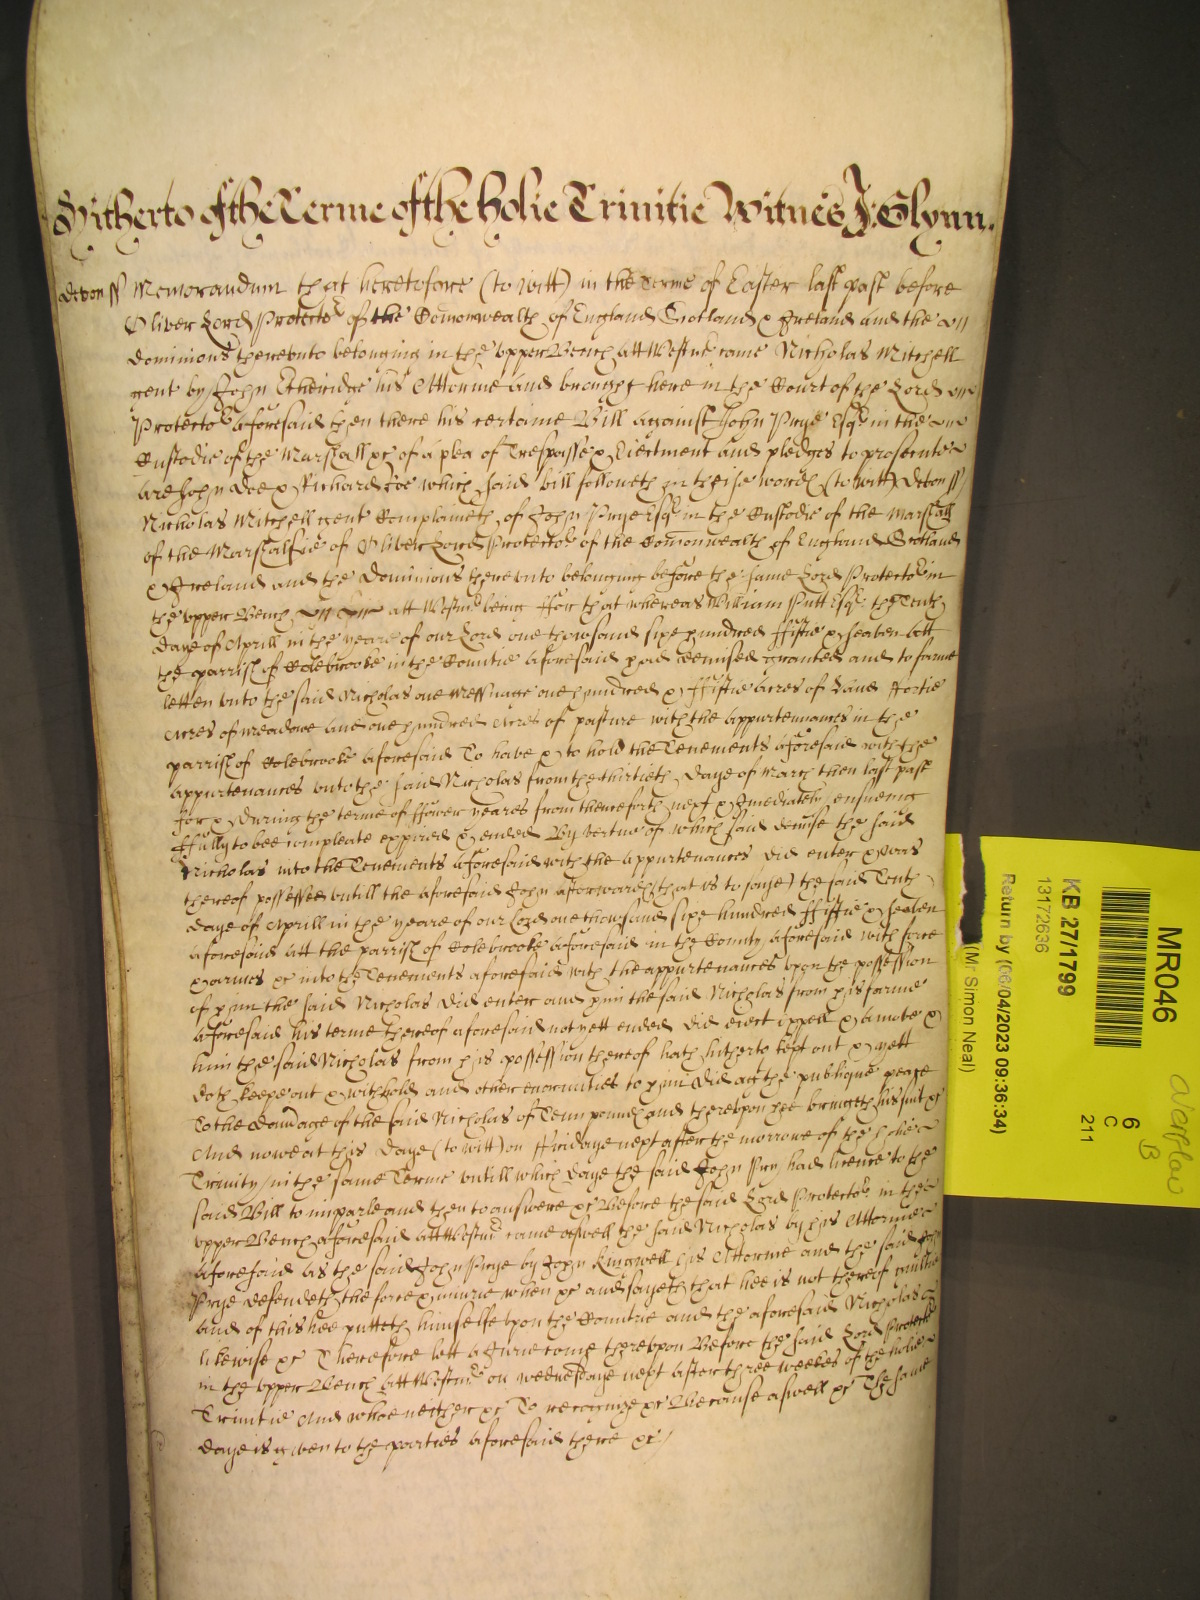 Hitherto of the Terme of the holie Trinitie Witnes J: Glynn.
Devon ss Memorandum that heretofore (to witt) in the Terme of Easter last past before
Oliver Lord Protector of the Comonwealth of England Scotland & Ireland and the
Dominions thereunto belonging in the upper Bench att Westmr came Nicholas Mitchell
gent by John Etheridge his Attorme and brought here in the Court of the Lord
Protector aforesaid then there his certaine Bill against John Prye Esqr in the
Custodie of the Marshall &c of a plea of Trespasse & Eiectment and pledges to prosecute
are John Doe & Richard Roe which said bill followeth in theise words (to witt) Devon ss
Nicholas Mitchell gent Complaineth of John Prye Esqr in the Custodie of the Marshall
of the Marshalsie of Oliver Lord Protector of the Comonwealth of England Scotland
& Ireland and the Dominions thereunto belonging before the same Lord Protector in
the upper Bench att Westmr being For that whereas William Putt Esqr the Tenth
daye of Aprill in the yeare of our Lord one thowsand sixe hundred Fiftie & seaven att
the parrish of Colebrooke in the Countie aforesaid had demised graunted and to farme
letten unto the said Nicholas one Messuage one hundred & Fiftie acres of Land Fortie
Acres of meadowe and one hundred Acres of pasture with the appurtenances in the
parrish of Colebrooke aforesaid To have & to hold the Tenements aforesaid with the
appurtenances unto the said Nicholas from the thirtieth daye of March then last past
for & during the terme of Fower yeares from thenceforth next & Imediately ensueing
Fully to bee compleate expired & ended By vertue of which said demise the said
Nicholas into the Tenements aforesaid with the appurtenances did enter & was
thereof possessed untill the aforesaid John aforwards (that is to saye) the said Tenth
daye of Aprill in the yeare of our Lord one thowsand sixe hundred Fiftie & seaven
aforesaid att the parrish of Colebrooke aforesaid in the County aforesaid with force
& armes &c into the Tenements aforesaid with the appurtenances upon the possession
of him the said Nicholas did enter and him the said Nicholas from his farme
aforesaid his terme thereof aforesaid not yett ended did eiect expell & amove &
him the said Nicholas from his possession thereof hath hitherto kept out & yett
doth keepe out & withhold and other enormities to him did agt the publique peace
To the damage of the said Nicholas of Tenn pounds and thereupon hee bringeth his suit &c
And nowe at this daye (to witt) on Fridaye next after the morrowe of the holie
Trinity in the same Terme untill which daye the said John Pry had licence to the
said Bill to imparle and then to answere &c Before the said Lord Protector in the
upper Bench aforesaid att Westmr came aswell the said Nicholas by his Attorme
aforesaid as the said John Prye by John Kingwell his Attorme and the said John
Prye defendeth the force & iniurie when &c and sayeth that hee is not thereof guiltie
and of this hee putteth himselfe upon the Countrie and the aforesaid Nicholas
likewise &c Therefore lett a Jurie come thereupon Before the said Lord Protector
in the upper Bench att Westmr on wednesdaye next after three weekes of the holie
Trinitie And whoe neither &c To recognize &c Because aswell &c The same
daye is given to the parties aforesaid there &c
MR046
KB 27/1799
13172636
Return by (06/04/2023 09:36:34)
(Mr Simon Neal)
6
C
211
B